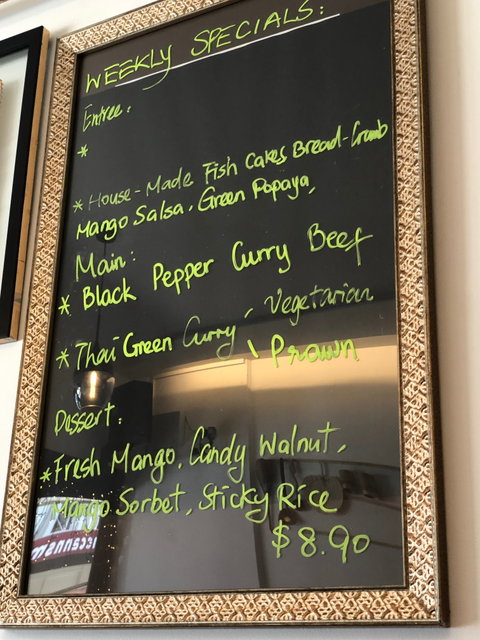 WEEKLY SPECIALS:
Entree:
*
* House-Made Fish Cakes Bread-Crumb
Mango Salsa, Green Papaya,
Main:
* Black Pepper Curry Beef
* Thai Green Curry, Vegetarian
, Prawn
Dessert:
* Fresh Mango, Candy Walnut,
Mango Sorbet, Sticky Rice
$8.90